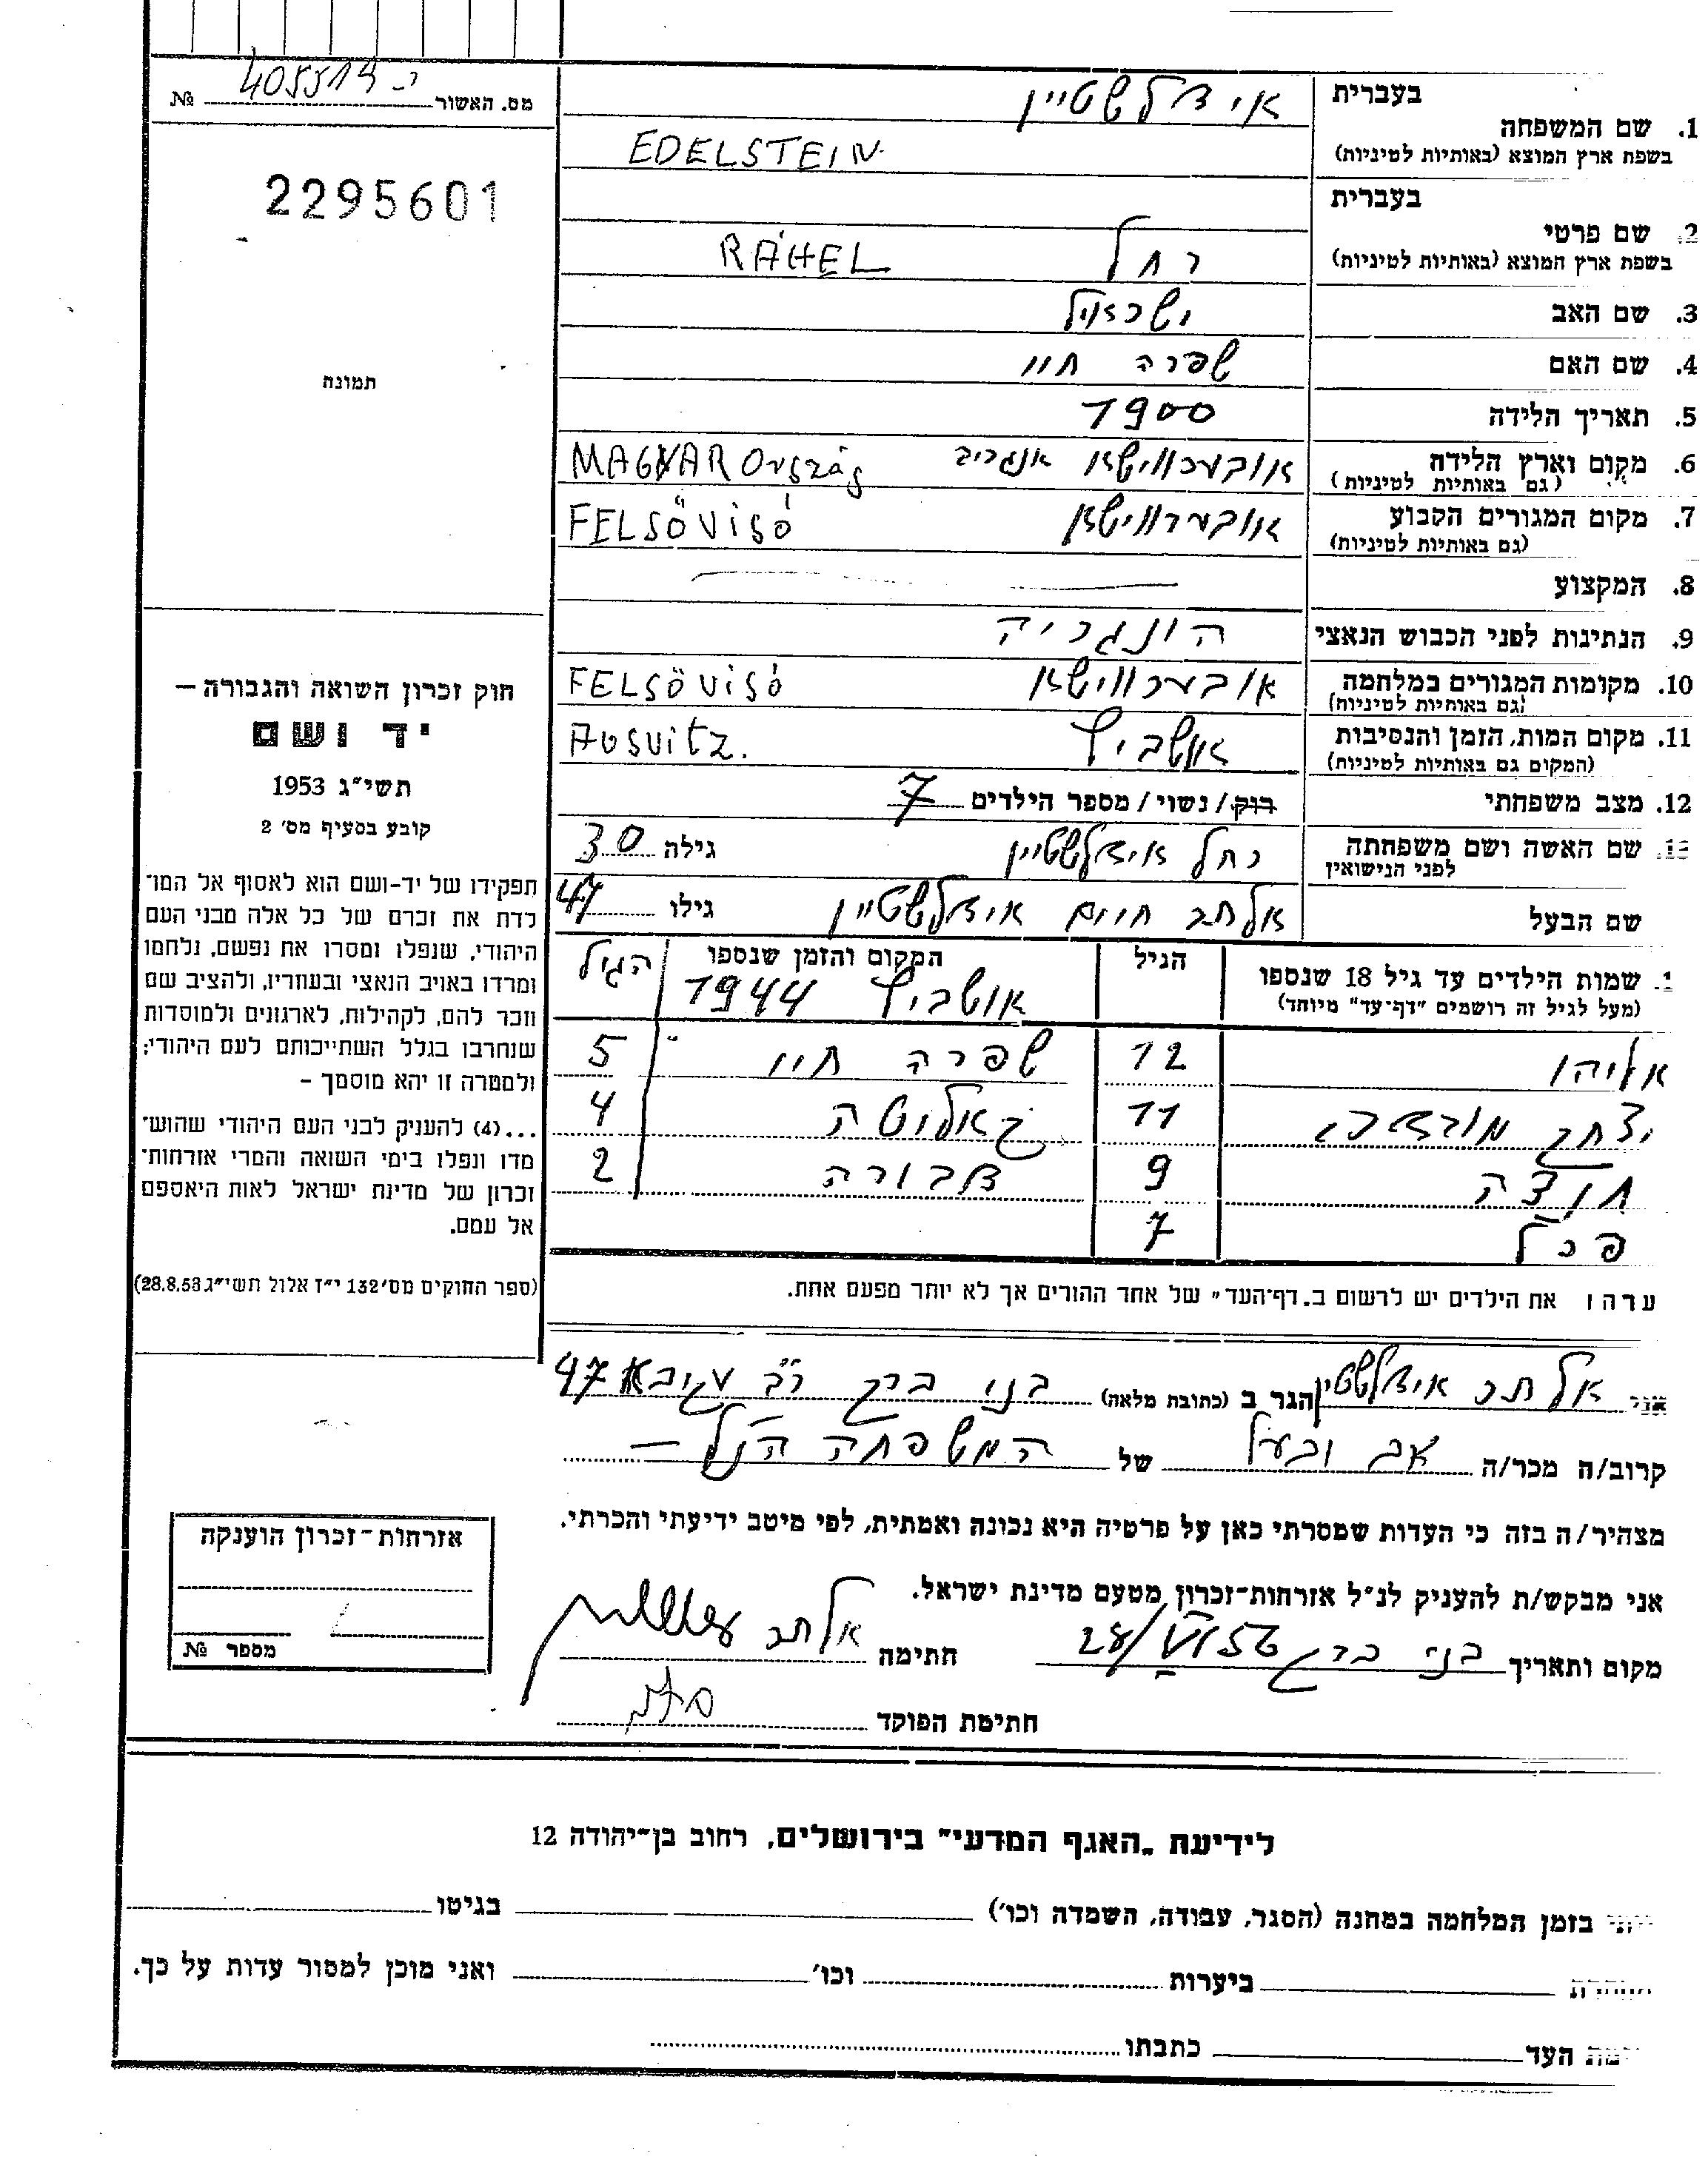 מס. האשור י- 405519 №
2295601
תמונה
חוק זכרון השואה והגבורה –
יד ושם
תשי"ג 1953
קובע בסעיף מס' 2
תפקידו של יד-ושם הוא לאסוף אל המו־
לדת את זכרם של כל אלה מבני העם
היהודי, שנפלו ומסרו את נפשם, נלחמו
ומרדו באויב הנאצי ובעוזריו, ולהציב שם
וזכר להם, לקהילות, לארגונים ולמוסדות
שנחרבו בגלל השתייכותם לעם היהודי;
ולמטרה זו יהא מוסמך –
...(4) להעניק לבני העם היהודי שהוש־
מדו ונפלו בימי השואה והמרי אזרחות־
זכרון של מדינת ישראל לאות היאספם
אל עמם.
(ספר החוקים מס' 132 י"ז אלול תשי"ג 28.8.53)
בעברית אידלשטיין
1. שם המשפחה
בשפת ארץ המוצא (באותיות לטיניות) EDELSTEIN
בעברית
2. שם פרטי רחל
בשפת ארץ המוצא (באותיות לטיניות) RÁHEL
3. שם האב ישראל
4. שם האם שפרה חיי
5. תאריך הלידה 1900
6. מקום וארץ הלידה אובערווישא MAGYARORSZÁG
(גם באותיות לטיניות)
7. מקום המגורים הקבוע אובערווישא FELSŐVISÓ
(גם באותיות לטיניות)
8. המקצוע
9. הנתינות לפני הכבוש הנאצי הונגריה
10. מקומות המגורים במלחמה אובערווישא FELSŐVISÓ
(גם באותיות לטיניות)
11. מקום המות, הזמן והנסיבות אושביץ Ausvitz.
(המקום גם באותיות לטיניות)
12. מצב משפחתי רוק / נשוי / מספר הילדים 7
13. שם האשה ושם משפחתה רחל אידלשטיין גילה 30
לפני הנישואין
שם הבעל אלתר חיים אידלשטיין גילו 47
1. שמות הילדים עד גיל 18 שנספו הגיל המקום והזמן שנספו הגיל
(מעל לגיל זה רושמים "דף-עד" מיוחד) אושביץ 1944
אליהו 12 שפרה חיי 5
יצחק 11 4
9 דבורה 2
פרל 7
ערהו את הילדים יש לרשום ב„דף־העד" של אחד ההורים אך לא יותר מפעם אחת.
אני אלתר אידלשטיין הגר ב (כתובת מלאה) בני ברק רב עקיבא 47
קרוב/ה מכר/ה אב ובעל של המשפחה הנ"ל –
מצהיר/ה בזה כי העדות שמסרתי כאן על פרטיה היא נכונה ואמתית, לפי מיטב ידיעתי והכרתי.
אני מבקש/ת להעניק לנ"ל אזרחות־זכרון מטעם מדינת ישראל.
מקום ותאריך בני ברק 28/VI 56 חתימה אלתר
חתימת הפוקד
אזרחות־זכרון הוענקה
מספר №
לידיעת „האגף המדעי" בירושלים, רחוב בן־יהודה 12
בזמן המלחמה במחנה (הסגר, עבודה, השמדה וכו') בגיטו
ביערות וכו' ואני מוכן למסור עדות על כך.
העד כתבתו